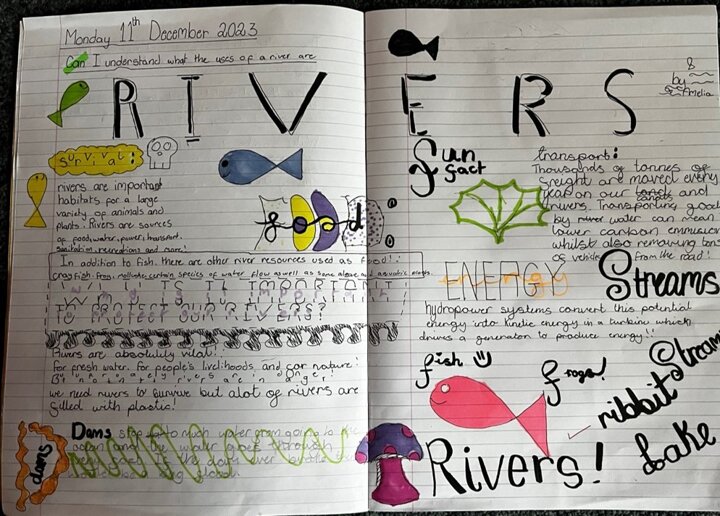 Monday 11th December 2023
Can I understand what the uses of a river are
RIVERS
by
Amelia
Survival:
rivers are important
habitats for a large
variety of animals and
plants. Rivers are sources
of food, water, power, transport,
sanitation, recreations and more!
food:
In addition to fish, there are other river resources used as food:
crag fish, frog, molluste, certain species of water flow as well as some algae and aquatic
WHY IS IT IMPORTANT
TO PROTECT OUR RIVERS?
Rivers are absolutely vital!
for fresh water. for people's livelihoods and for nature!
But unfortunately rivers are in danger!
we need rivers to survive but alot of rivers are
filled with plastic!
dams
Dams stop to much water from going to the
fun
fact
transport:
Thousands of tonnes of
freight are moved every
year on our canals and
rivers. Transporting goods
by water can mean
lower carboon emmission
whilst also removing tons
of vehicles from the road!
ENERGY
Streams
hydropower systems convert this potential
energy into kinetic energy in a turbine which
drives a generator to produce energy!!
fish
frogs!
Stream
ribbit
Lake
Rivers!